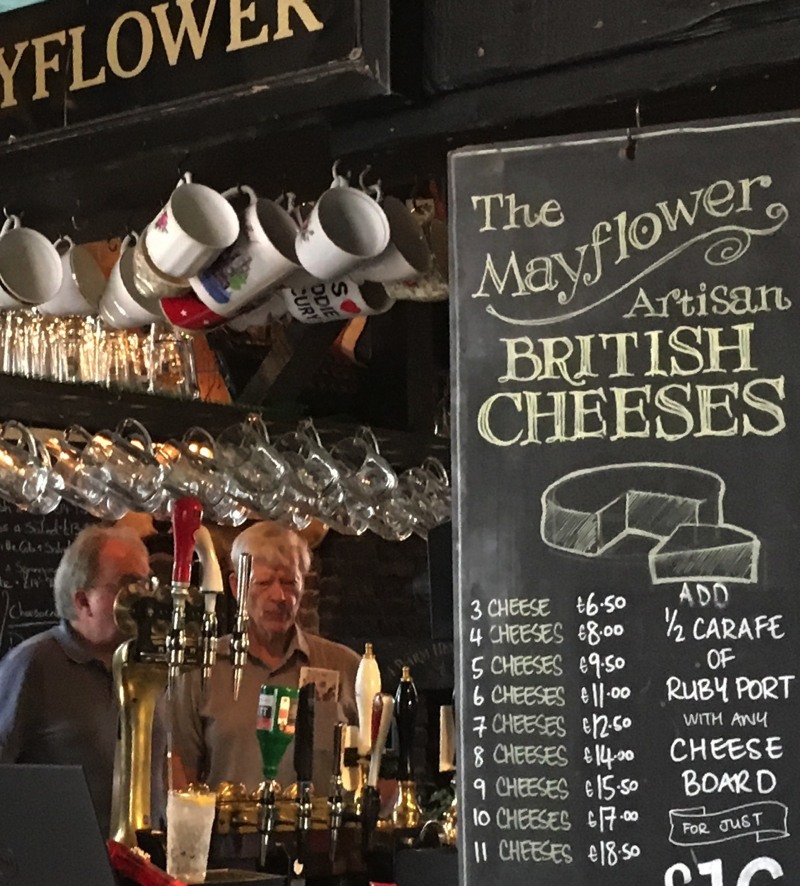 YFLOWER
The
Mayflower
Artisan
BRITISH
CHEESES
3 CHEESE £6.50
4 CHEESES £8.00
5 CHEESES £9.50
6 CHEESES £11.00
7 CHEESES £12.50
8 CHEESES £14.00
9 CHEESES £15.50
10 CHEESES £17.00
11 CHEESES £18.50
ADD
1/2 CARAFE
OF
RUBY PORT
WITH ANY
CHEESE
BOARD
FOR JUST